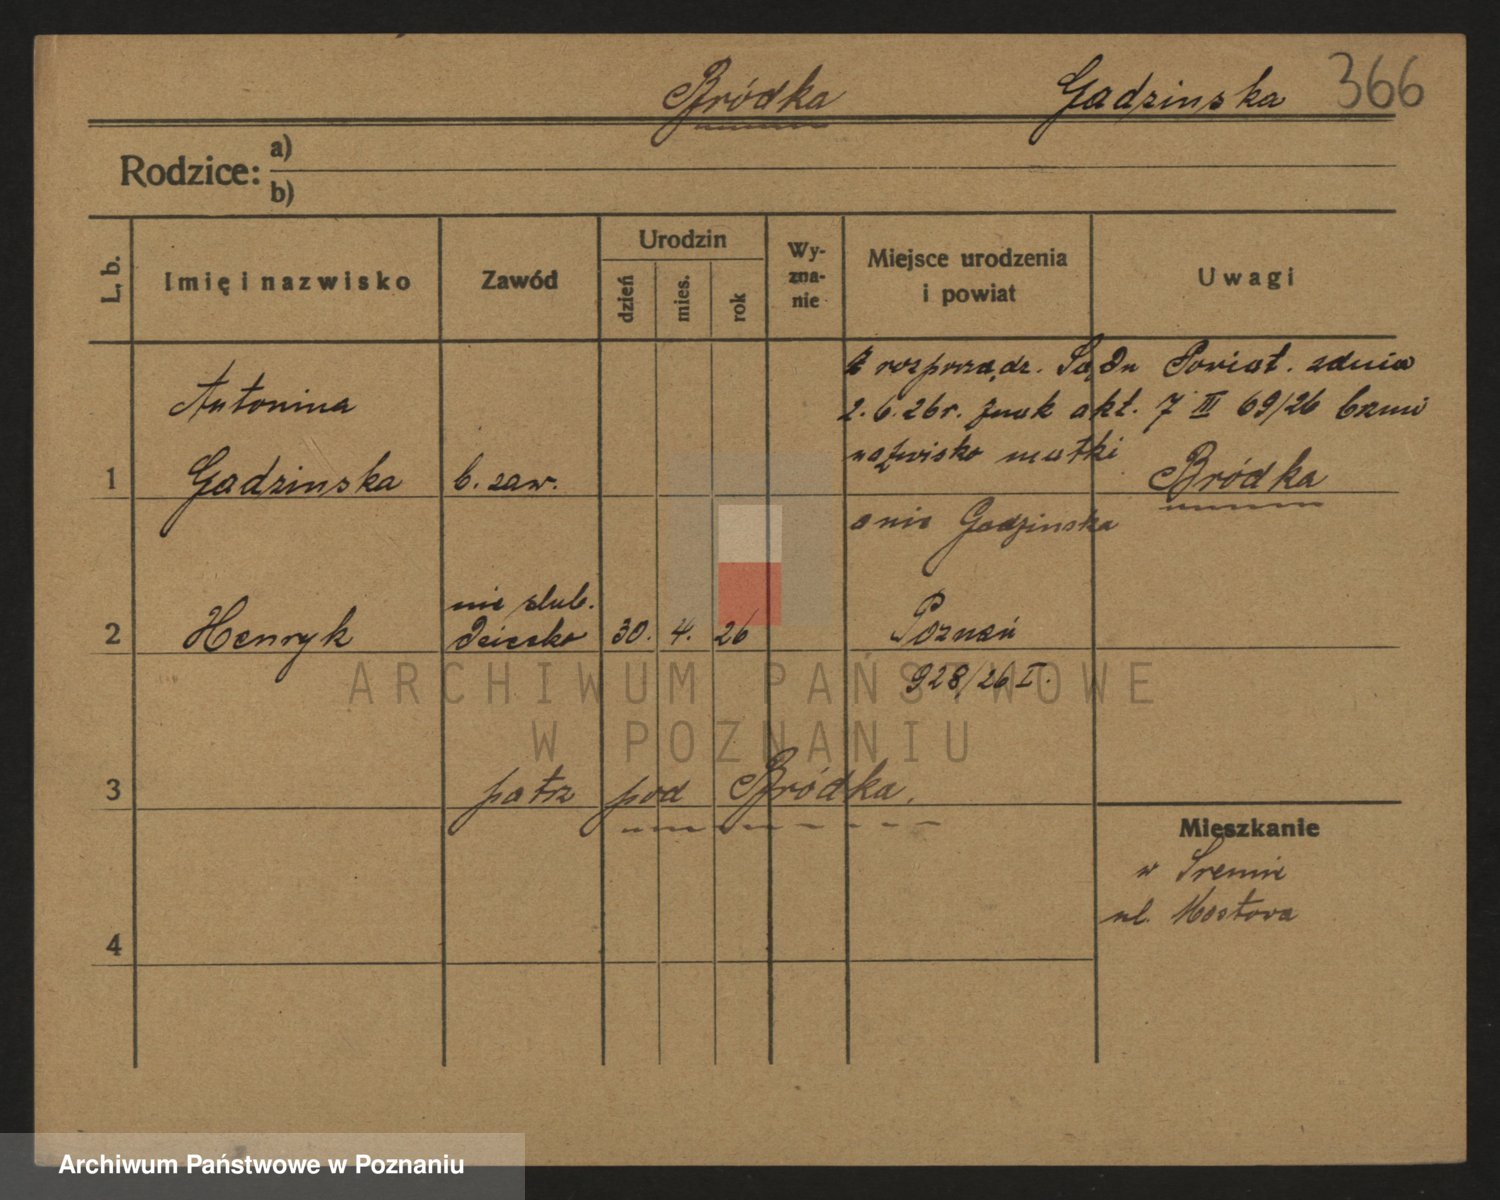 Bródka Gadzinska 366
Rodzice: a)
b)
L. b.
Imię i nazwisko
Zawód
Urodzin
dzień
mies.
rok
Wy-
zna-
nie
Miejsce urodzenia
i powiat
Uwagi
z rozporządz. Sądu Powiat. z dnia
2.6.26r. znak akt. 7 III 69/26 brzmi
nazwisko matki Bródka
a nie Gadzinska
Antonina
1 Gadzinska b. zaw.
nie slub.
2 Henryk dziecko 30. 4. 26 Poznań
928/26 I.
3 patrz pod Bródka.
4
Mieszkanie
w Śremie
ul. Mostowa
ARCHIWUM PAŃSTWOWE
W POZNANIU
Archiwum Państwowe w Poznaniu